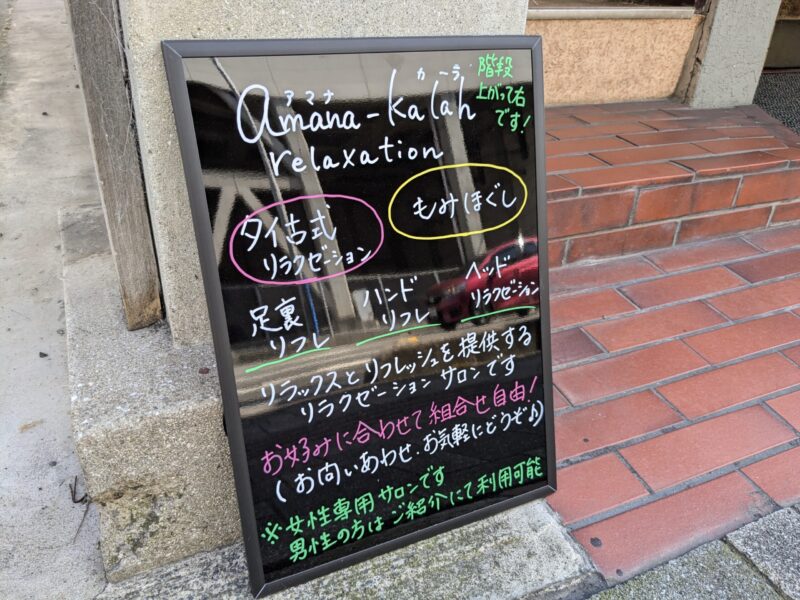 アマナ カーラ
amana-kalah
relaxation
階段
上がって右
です!
タイ古式
リラクゼーション
もみほぐし
足裏
リフレ
ハンド
リフレ
ヘッド
リラクゼーション
リラックスとリフレッシュを提供する
リラクゼーションサロンです
お好みに合わせて組合せ自由!
(お問いあわせ・お気軽にどうぞ♪)
※女性専用サロンです
男性の方はご紹介にて利用可能